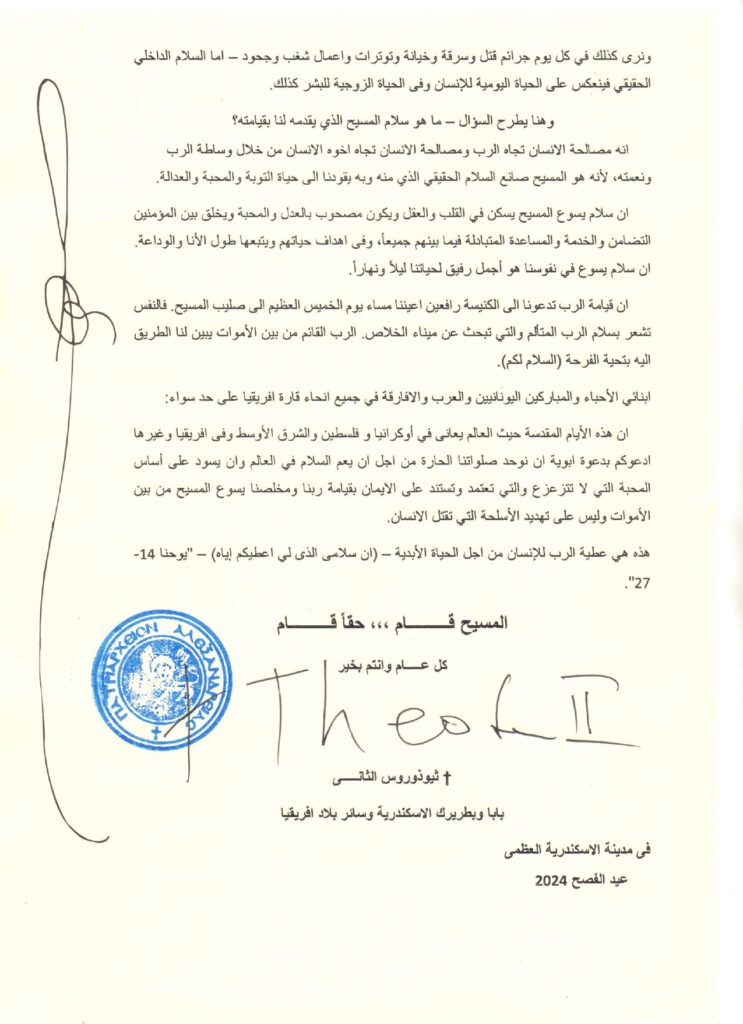 ونرى كذلك في كل يوم جرائم قتل وسرقة وخيانة وتوترات واعمال شغب وجحود – اما السلام الداخلي
الحقيقي فينعكس على الحياة اليومية للإنسان وفى الحياة الزوجية للبشر كذلك.
وهنا يطرح السؤال – ما هو سلام المسيح الذي يقدمه لنا بقيامته؟
انه مصالحة الانسان تجاه الرب ومصالحة الانسان تجاه اخوه الانسان من خلال وساطة الرب
ونعمته، لأنه هو المسيح صانع السلام الحقيقي الذي منه وبه يقودنا الى حياة التوبة والمحبة والعدالة.
ان سلام يسوع المسيح يسكن في القلب والعقل ويكون مصحوب بالعدل والمحبة ويخلق بين المؤمنين
التضامن والخدمة والمساعدة المتبادلة فيما بينهم جميعاً، وفى اهداف حياتهم ويتبعها طول الأنا والوداعة.
ان سلام يسوع في نفوسنا هو أجمل رفيق لحياتنا ليلاً ونهاراً.
ان قيامة الرب تدعونا الى الكنيسة رافعين اعيننا مساء يوم الخميس العظيم الى صليب المسيح. فالنفس
تشعر بسلام الرب المتألم والتي تبحث عن ميناء الخلاص. الرب القائم من بين الأموات يبين لنا الطريق
اليه بتحية الفرحة (السلام لكم).
ابنائي الأحباء والمباركين اليونانيين والعرب والافارقة في جميع انحاء قارة افريقيا على حد سواء:
ان هذه الأيام المقدسة حيث العالم يعانى في أوكرانيا و فلسطين والشرق الأوسط وفى افريقيا وغيرها
ادعوكم بدعوة ابوية ان نوحد صلواتنا الحارة من اجل ان يعم السلام في العالم وان يسود على أساس
المحبة التي لا تتزعزع والتي تعتمد وتستند على الايمان بقيامة ربنا ومخلصنا يسوع المسيح من بين
الأموات وليس على تهديد الأسلحة التي تقتل الانسان.
هذه هي عطية الرب للإنسان من اجل الحياة الأبدية – (ان سلامى الذى لي اعطيكم إياه) – "يوحنا 14-
27".
المسيح قـــــــام ،،، حقـاً قـــــــام
ΠΑΤΡΙΑΡΧΕΙΟΝ ΑΛΕΞΑΝΔΡΕΙΑΣ
كل عـــام وانتم بخير
II
† ثيوذوروس الثانـــى
بابا وبطريرك الاسكندرية وسائر بلاد افريقيا
فى مدينة الاسكندرية العظمى
عيد الفصح 2024